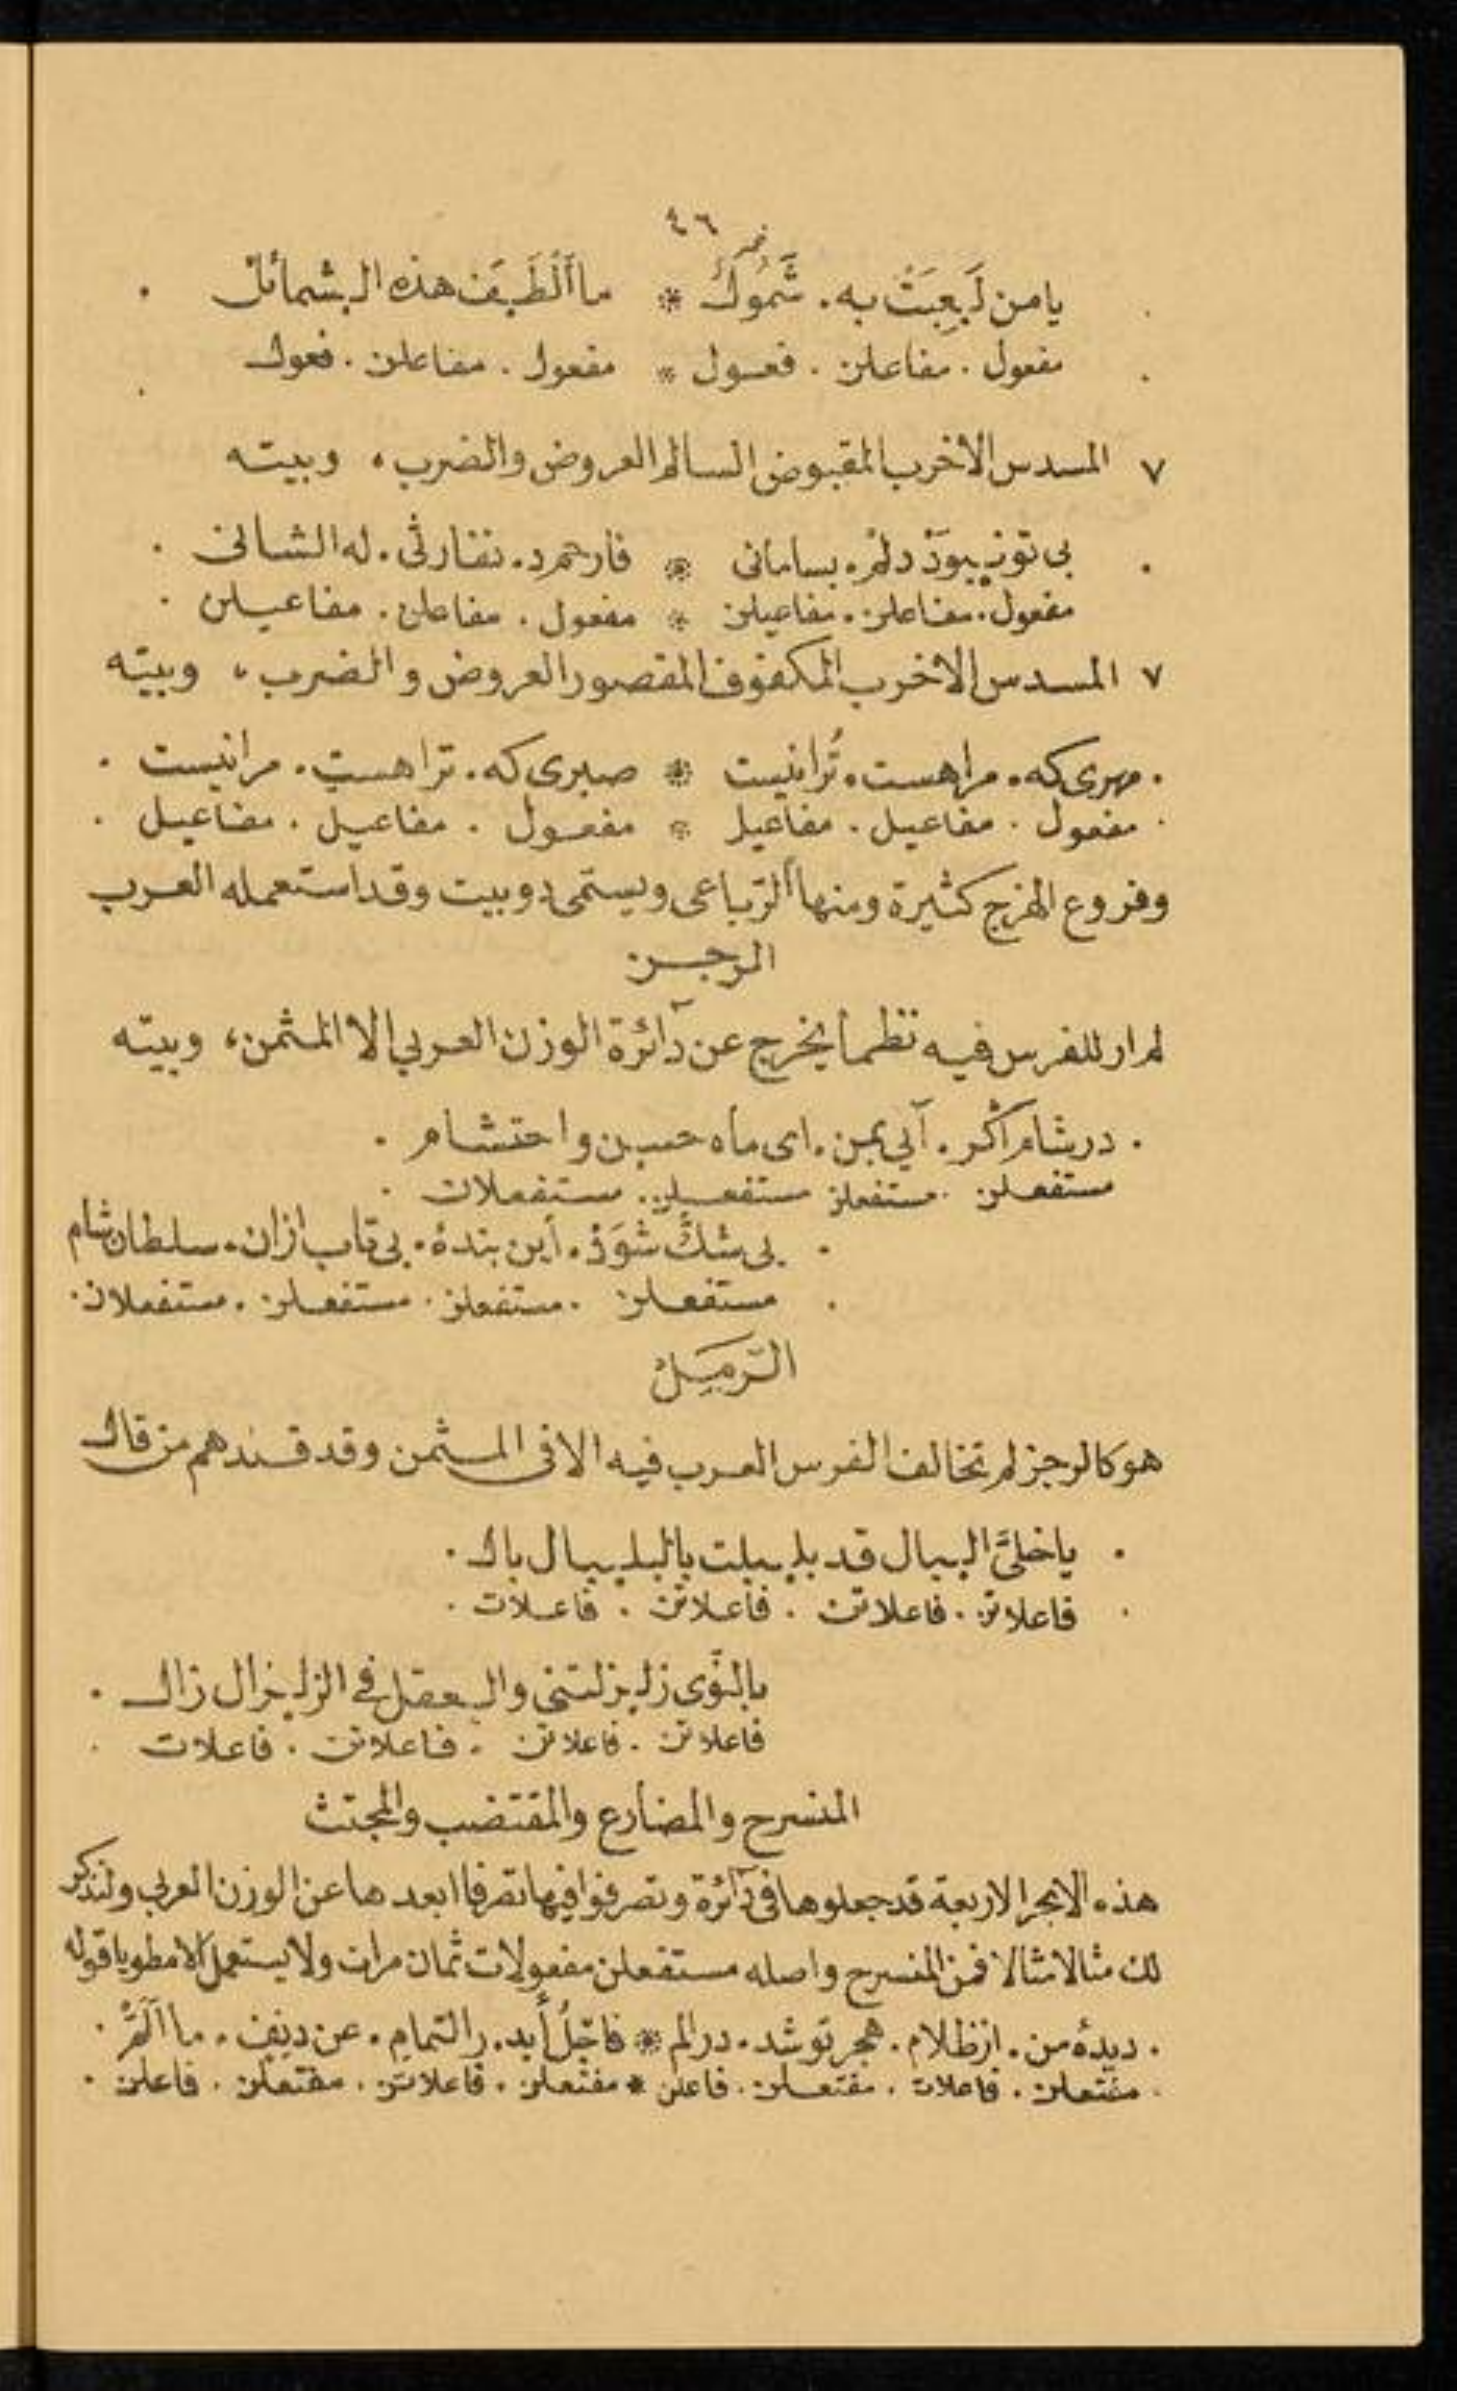 نمر ٤٦
يا من لَعِبَتْ به . شَمُولٌ * ما أَلْطَفَ هذه الشمائل .
مفعول . مفاعلن . فعول * مفعول . مفاعلن . فعول
٧ المسدس الاخرب المقبوض السالم العروض والضرب ، وبيته
بى تو نبوَدْ دلم . بسامانى * فارحم د . نفارثى . له الشانى .
مفعول . مفاعلن . مفاعيلن * مفعول . مفاعلن . مفاعيلن .
٧ المسدس الاخرب المكفوف المقصور العروض والضرب ، وبيته
. مهرى كه . مراهست . تُرانيست * صبرى كه . تراهست . مرانيست .
. مفعول . مفاعيل . مفاعيل * مفعول . مفاعيل . مفاعيل .
وفروع الهزج كثيرة ومنها الرّباعى ويسمّى دوبيت وقد استعمله العرب
الرجز
لم ار للفرس فيه نظماً يخرج عن دآئرة الوزن العربي الا المثمن ، وبيته
. در شام اگر . آيي بمن . اى ماه حسن واحتشام .
مستفعلن . مستفعلن مستفعلن . مستفعلات .
. بى شكّ شَوَدْ . أين بندهٔ . بى تاب ازان . سلطان شام
. مستفعلن . مستفعلن . مستفعلن . مستفعلان .
الرّمَل
هو كالرجز لم تخالف الفرس العرب فيه الا فى المثمن وقد قند هم من قال
. يا خلىَّ البال قد بلبلت بالبلبال بال .
. فاعلاتن . فاعلاتن . فاعلاتن . فاعلات .
بالنّوى زلزلتنى والعقل في الزلزال زال .
فاعلاتن . فاعلاتن . فاعلاتن . فاعلات .
المنسرح والمضارع والمقتضب والمجتث
هذه الابحر الاربعة قد جعلوها فى دآئرة وتصرفوا فيها تصرفا ابعدها عن الوزن العربي ولنذكر
لك مثالا مثالا فمن المنسرح واصله مستفعلن مفعولات ثمان مرات ولا يستعمل الا مطويا قوله
. ديدهٔ من . از ظلام . هجر تو شد . در الم * فاجلُ أيد . ر التمام . عن دنف . ما ألَمْ .
. مفتعلن . فاعلات . مفتعلن . فاعلن * مفتعلن . فاعلاتن . مفتعلن . فاعلن .